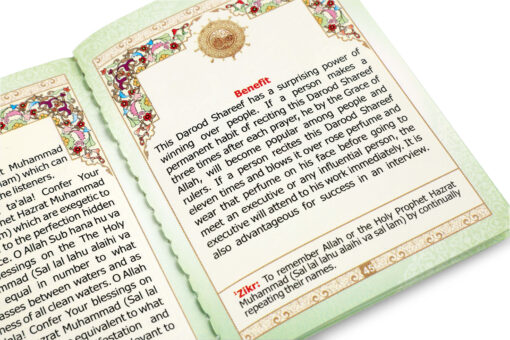 t Muhammad
lam) which can
he listeners.
ta'ala! Confer Your
Hazrat Muhammad
m) which are exegetic to
to the perfection hidden
e. O Allah Sub hana hu va
essings on the The Holy
mmad (Sal lal lahu alaihi va
equal in number to what
asses between waters and as
ness of all clean waters. O Allah
ala! Confer Your blessings on
zrat Muhammad (Sal lal
equivalent to what
festation and
levant to
Benefit
This Darood Shareef has a surprising power of
winning over people. If a person makes a
permanent habit of reciting this Darood Shareef
three times after each prayer, he by the Grace of
Allah, will become popular among people and
rulers. If a person recites this Darood Shareef
eleven times and blows it over rose perfume and
wear that perfume on his face before going to
meet an executive or any influential person, the
executive will attend to his work immediately. It is
also advantageous for success in an interview.
¹Zikr: To remember Allah or the Holy Prophet Hazrat
Muhammad (Sal lal lahu alaihi va sal lam) by continually
repeating their names.
45